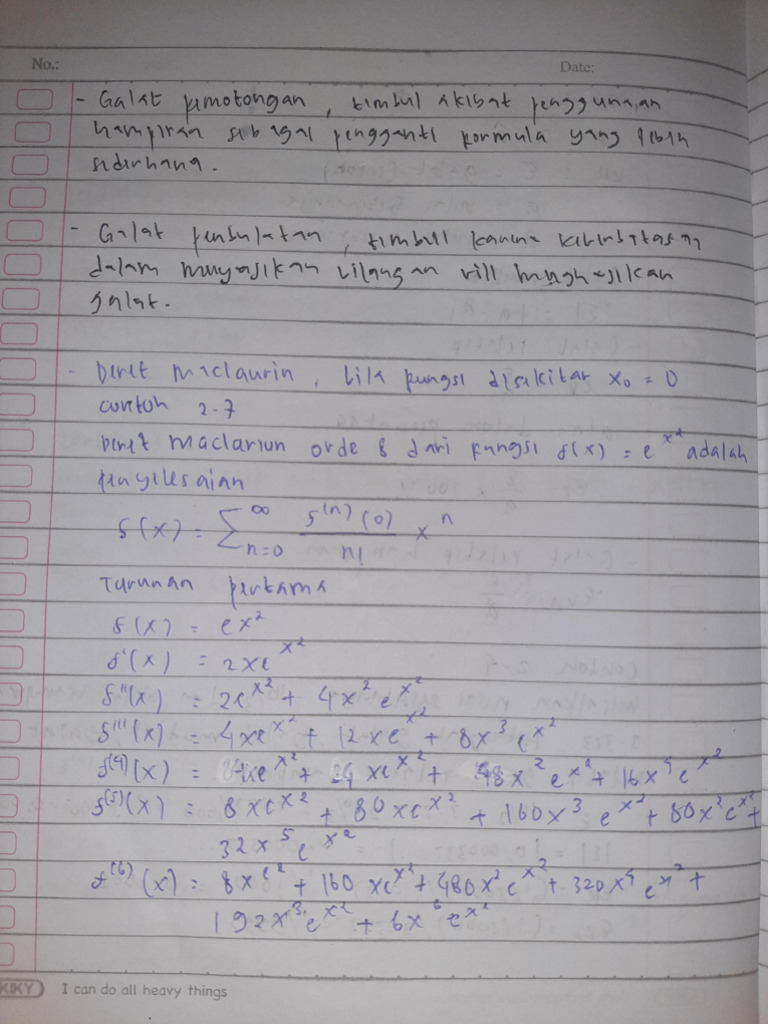 No.:
Date:
- Galat pemotongan, timbul akibat penggunaan
hampiran sebagai pengganti formula yang lebih
sederhana.
- Galat pembulatan, timbull karena keterbatasan
dalam menyajikan bilangan rill menghasilkan
galat.
- Deret Maclaurin, bila fungsi disekitar x₀ = 0
contoh 2-7
Deret maclariun orde 8 dari fungsi f(x) = e^x² adalah
penyelesaian
f(x) = ∑_{n=0}^{∞} f⁽ⁿ⁾(0)/n! xⁿ
Turunan pertama
f(x) = ex²
f'(x) = 2xe^x²
f''(x) = 2e^x² + 4x² e^x²
f'''(x) = 4xe^x² + 12xe^x² + 8x³ e^x²
f⁽⁴⁾(x) = xe^x² + 24 xe^x² + 48x² e^x² + 16x⁴ e^x²
f⁽⁵⁾(x) = 8xe^x² + 80xe^x² + 160x³ e^x² + 80x² e^x² +
32x⁵ e^x²
f⁽⁶⁾(x) = 8x e² + 160 xe^x² + 480x² e^x² + 320x⁴ e^x² +
192x³ e^x² + 6x⁶ e^x²
KIKY I can do all heavy things